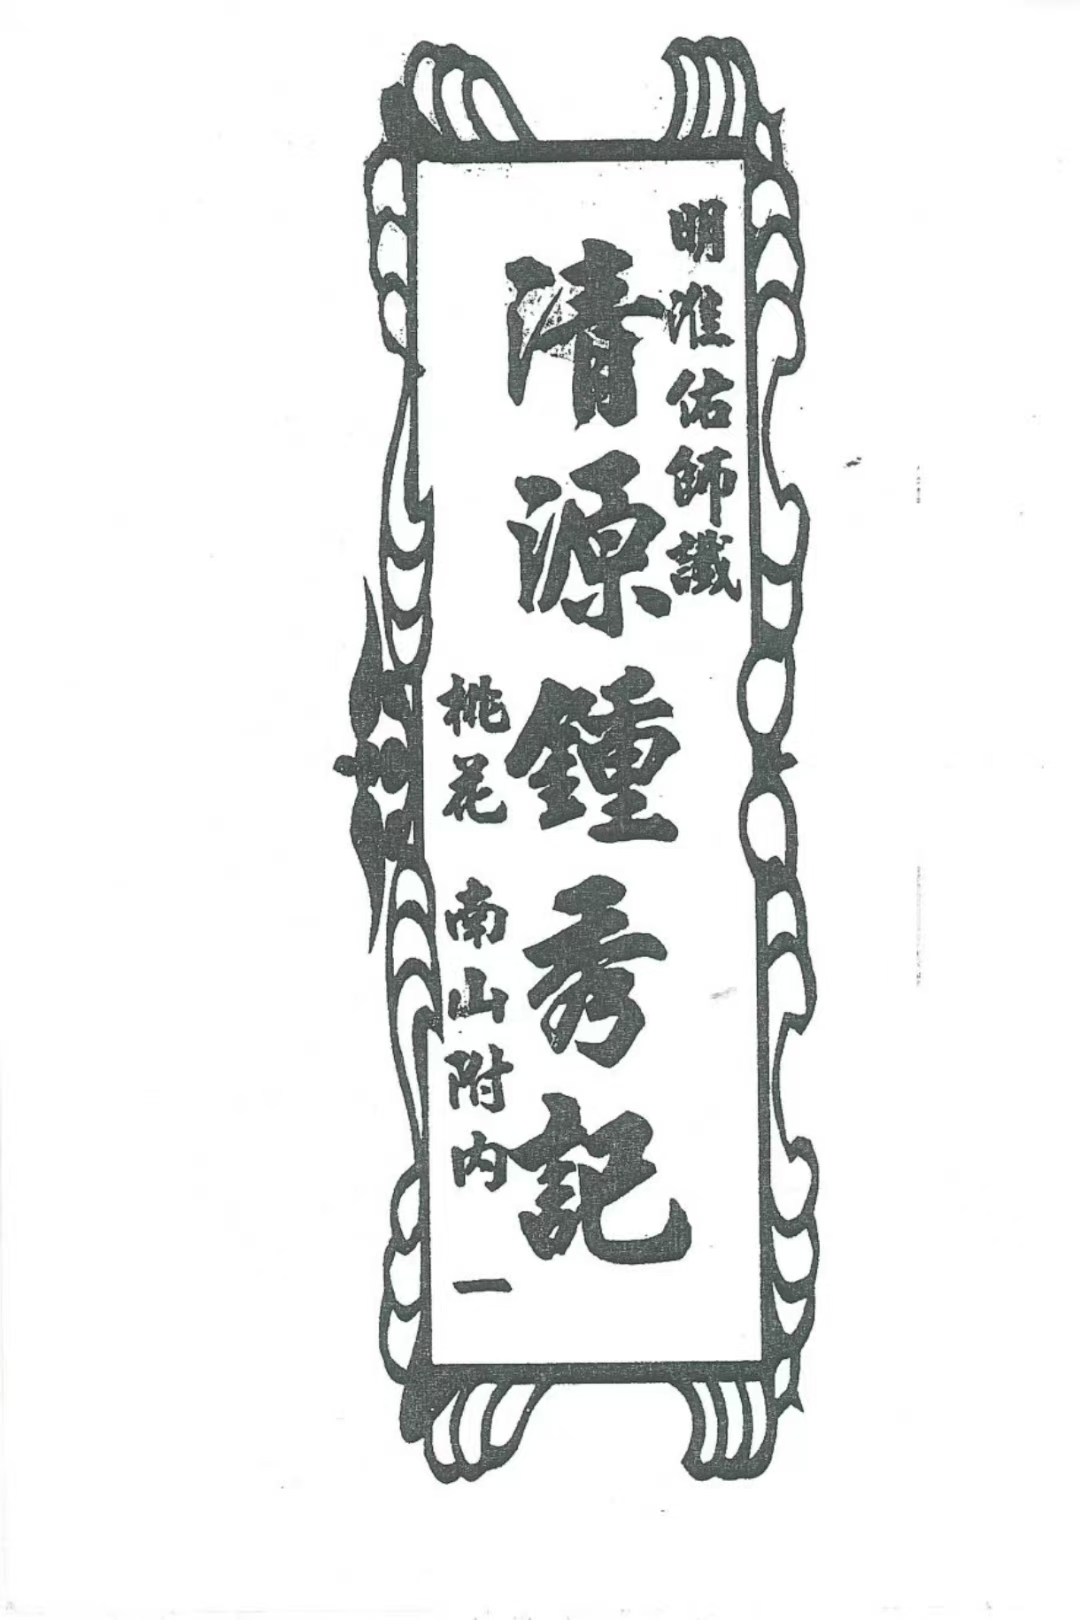 明淮佑師讖
清源鍾秀記
桃花 南山附内 一